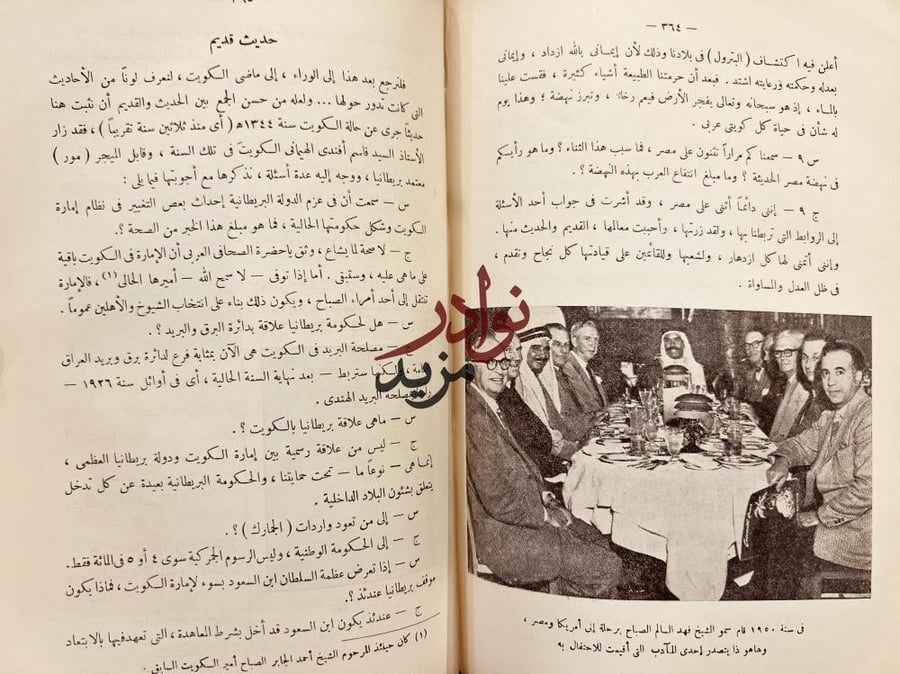 — ٣٦٤ —
أعلن فيه اكتشاف ( البترول ) فى بلادنا وذلك لأن إيمانى بالله ازداد ، وإيمانى
بعدله وحكمته ورعايته اشتد . فبعد أن حرمتنا الطبيعة أشياء كثيرة ، فقست علينا
بالماء ، إذ هو سبحانه وتعالى يفجر الأرض فيعم رخاء ، وتبرز نهضة ؛ وهذا يوم
له شأن فى حياة كل كويتى عربى .
س ٩ — سمعنا كم مراراً تثنون على مصر ، فما سبب هذا الثناء ؟ وما هو رأيكم
فى نهضة مصر الحديثة ؟ وما مبلغ انتفاع العرب بهذه النهضة ؟ .
ج ٩ — إننى دائماً أثنى على مصر ، وقد أشرت فى جواب أحد الأسئلة
إلى الروابط التى تربطنا بها ، ولقد زرتها ، وأحببت معالمها ، القديم والحديث منها .
وإننى أتمنى لها كل ازدهار ، ولشعبها وللقائمين على قيادتها كل نجاح وتقدم ،
فى ظل العدل والمساواة .
فى سنة ١٩٥٠ قام سمو الشيخ فهد السالم الصباح برحلة إلى أمريكا ومصر ،
وهاهو ذا يتصدر إحدى المآدب التى أقيمت للاحتفال به
حديث قديم
فلنرجع بعد هذا إلى الوراء ، إلى ماضى الكويت ، لنعرف لونًا من الأحاديث
التى كانت تدور حولها ... ولعله من حسن الجمع بين الحديث والقديم أن نثبت هنا
حديثاً جرى عن حالة الكويت سنة ١٣٤٤ هـ ( أى منذ ثلاثين سنة تقريباً ) ، فقد زار
الأستاذ السيد قاسم أفندى الهيمانى الكويت فى تلك السنة ، وقابل الميجر ( مور )
معتمد بريطانيا ، ووجه إليه عدة أسئلة ، نذكرها مع أجوبتها فيما يلى :
س — سمعت أن فى عزم الدولة البريطانية إحداث بعض التغيير فى نظام إمارة
الكويت وشكل حكومتها الحالية ، فما هو مبلغ هذا الخبر من الصحة ؟ .
ج — لا صحة لما يشاع ، وثق ياحضرة الصحافى العربى أن الإمارة فى الكويت باقية
على ما هى عليه ، وستبقى . أما إذا توفى — لا سمح الله — أميرها الحالى (١) ، فالإمارة
تنتقل إلى أحد أمراء الصباح ، ويكون ذلك بناء على انتخاب الشيوخ والأهلين عموماً .
س — هل لحكومة بريطانيا علاقة بدائرة البرق والبريد ؟ .
ج — مصلحة البريد فى الكويت هى الآن بمثابة فرع لدائرة برق وبريد العراق
ستربط — بعد نهاية السنة الحالية ، أى فى أوائل سنة ١٩٢٦ —
مصلحة البريد الهندى .
س — ماهى علاقة بريطانيا بالكويت ؟ .
ج — ليس من علاقة رسمية بين إمارة الكويت ودولة بريطانيا العظمى ،
إنما هى — نوعاً ما — تحت حمايتنا ، والحكومة البريطانية بعيدة عن كل تدخل
يتعلق بشئون البلاد الداخلية .
س — إلى من تعود واردات ( الجمارك ) ؟ .
ج — إلى الحكومة الوطنية ، وليس الرسوم الجمركية سوى ٤ أو ٥ فى المائة فقط .
س — إذا تعرض عظمة السلطان ابن السعود بسوء لإمارة الكويت ، فماذا يكون
موقف بريطانيا عندئذ ؟ .
ج — عندئذ يكون ابن السعود قد أخل بشرط المعاهدة ، التى تعهد فيها بالابتعاد
(١) كان حينئذ المرحوم الشيخ أحمد الجابر الصباح أمير الكويت السابق .
نوادر
مزيد